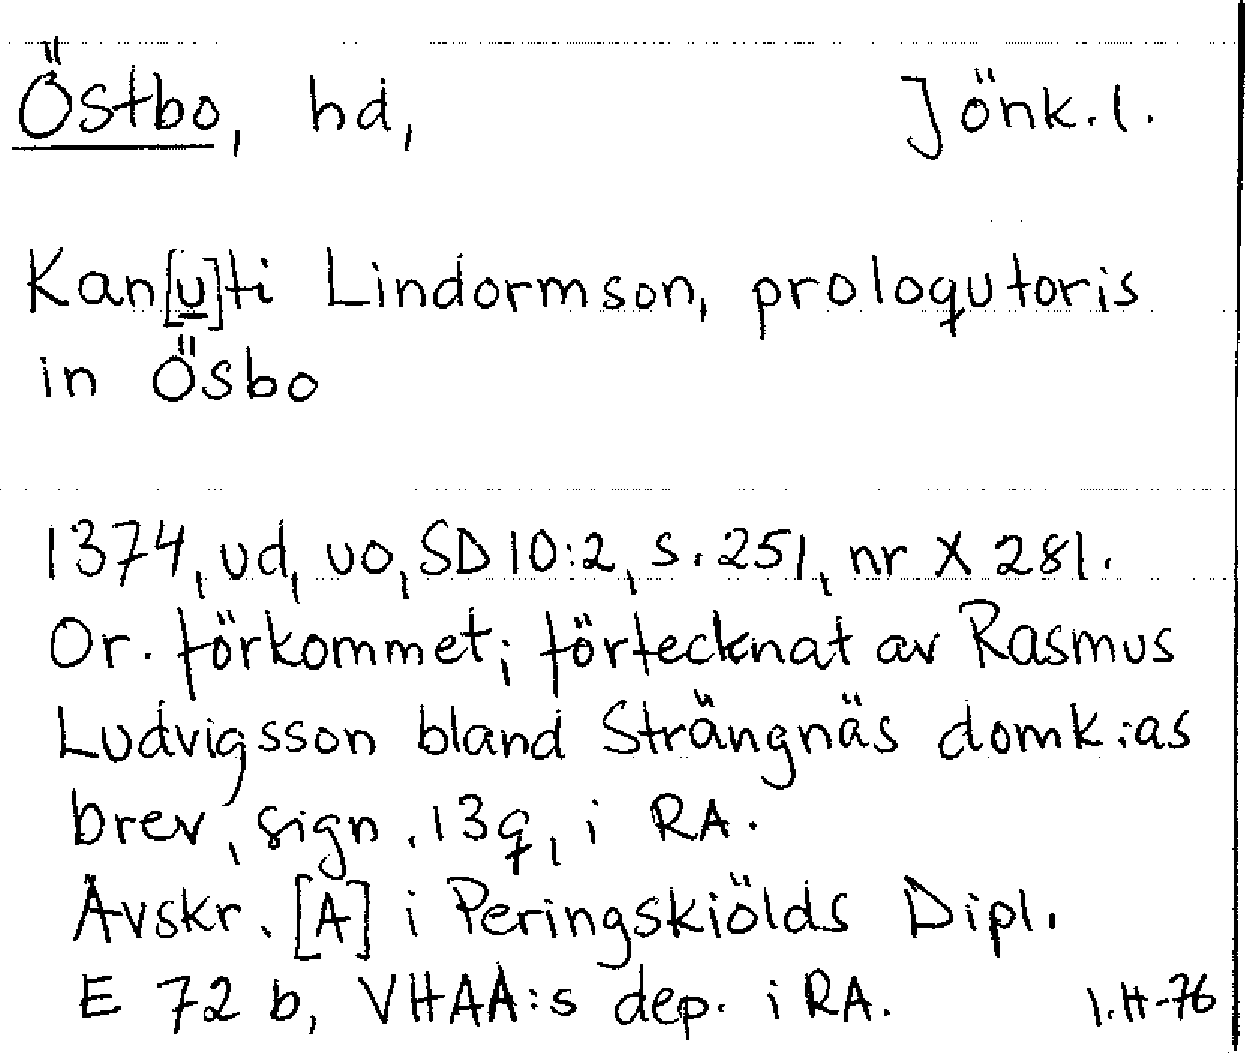 Östbo, hd, Jönk.l.
Kan[u]ti Lindormson, proloqutoris
in Ösbo
1374, ud, uo, SD 10:2, s. 251, nr X 281.
Or. förkommet; förtecknat av Rasmus
Ludvigsson bland Strängnäs domk:as
brev, sign. 13q, i RA.
Avskr. [A] i Peringskiölds Dipl.
E 72 b, VHAA:s dep. i RA. I.H-76